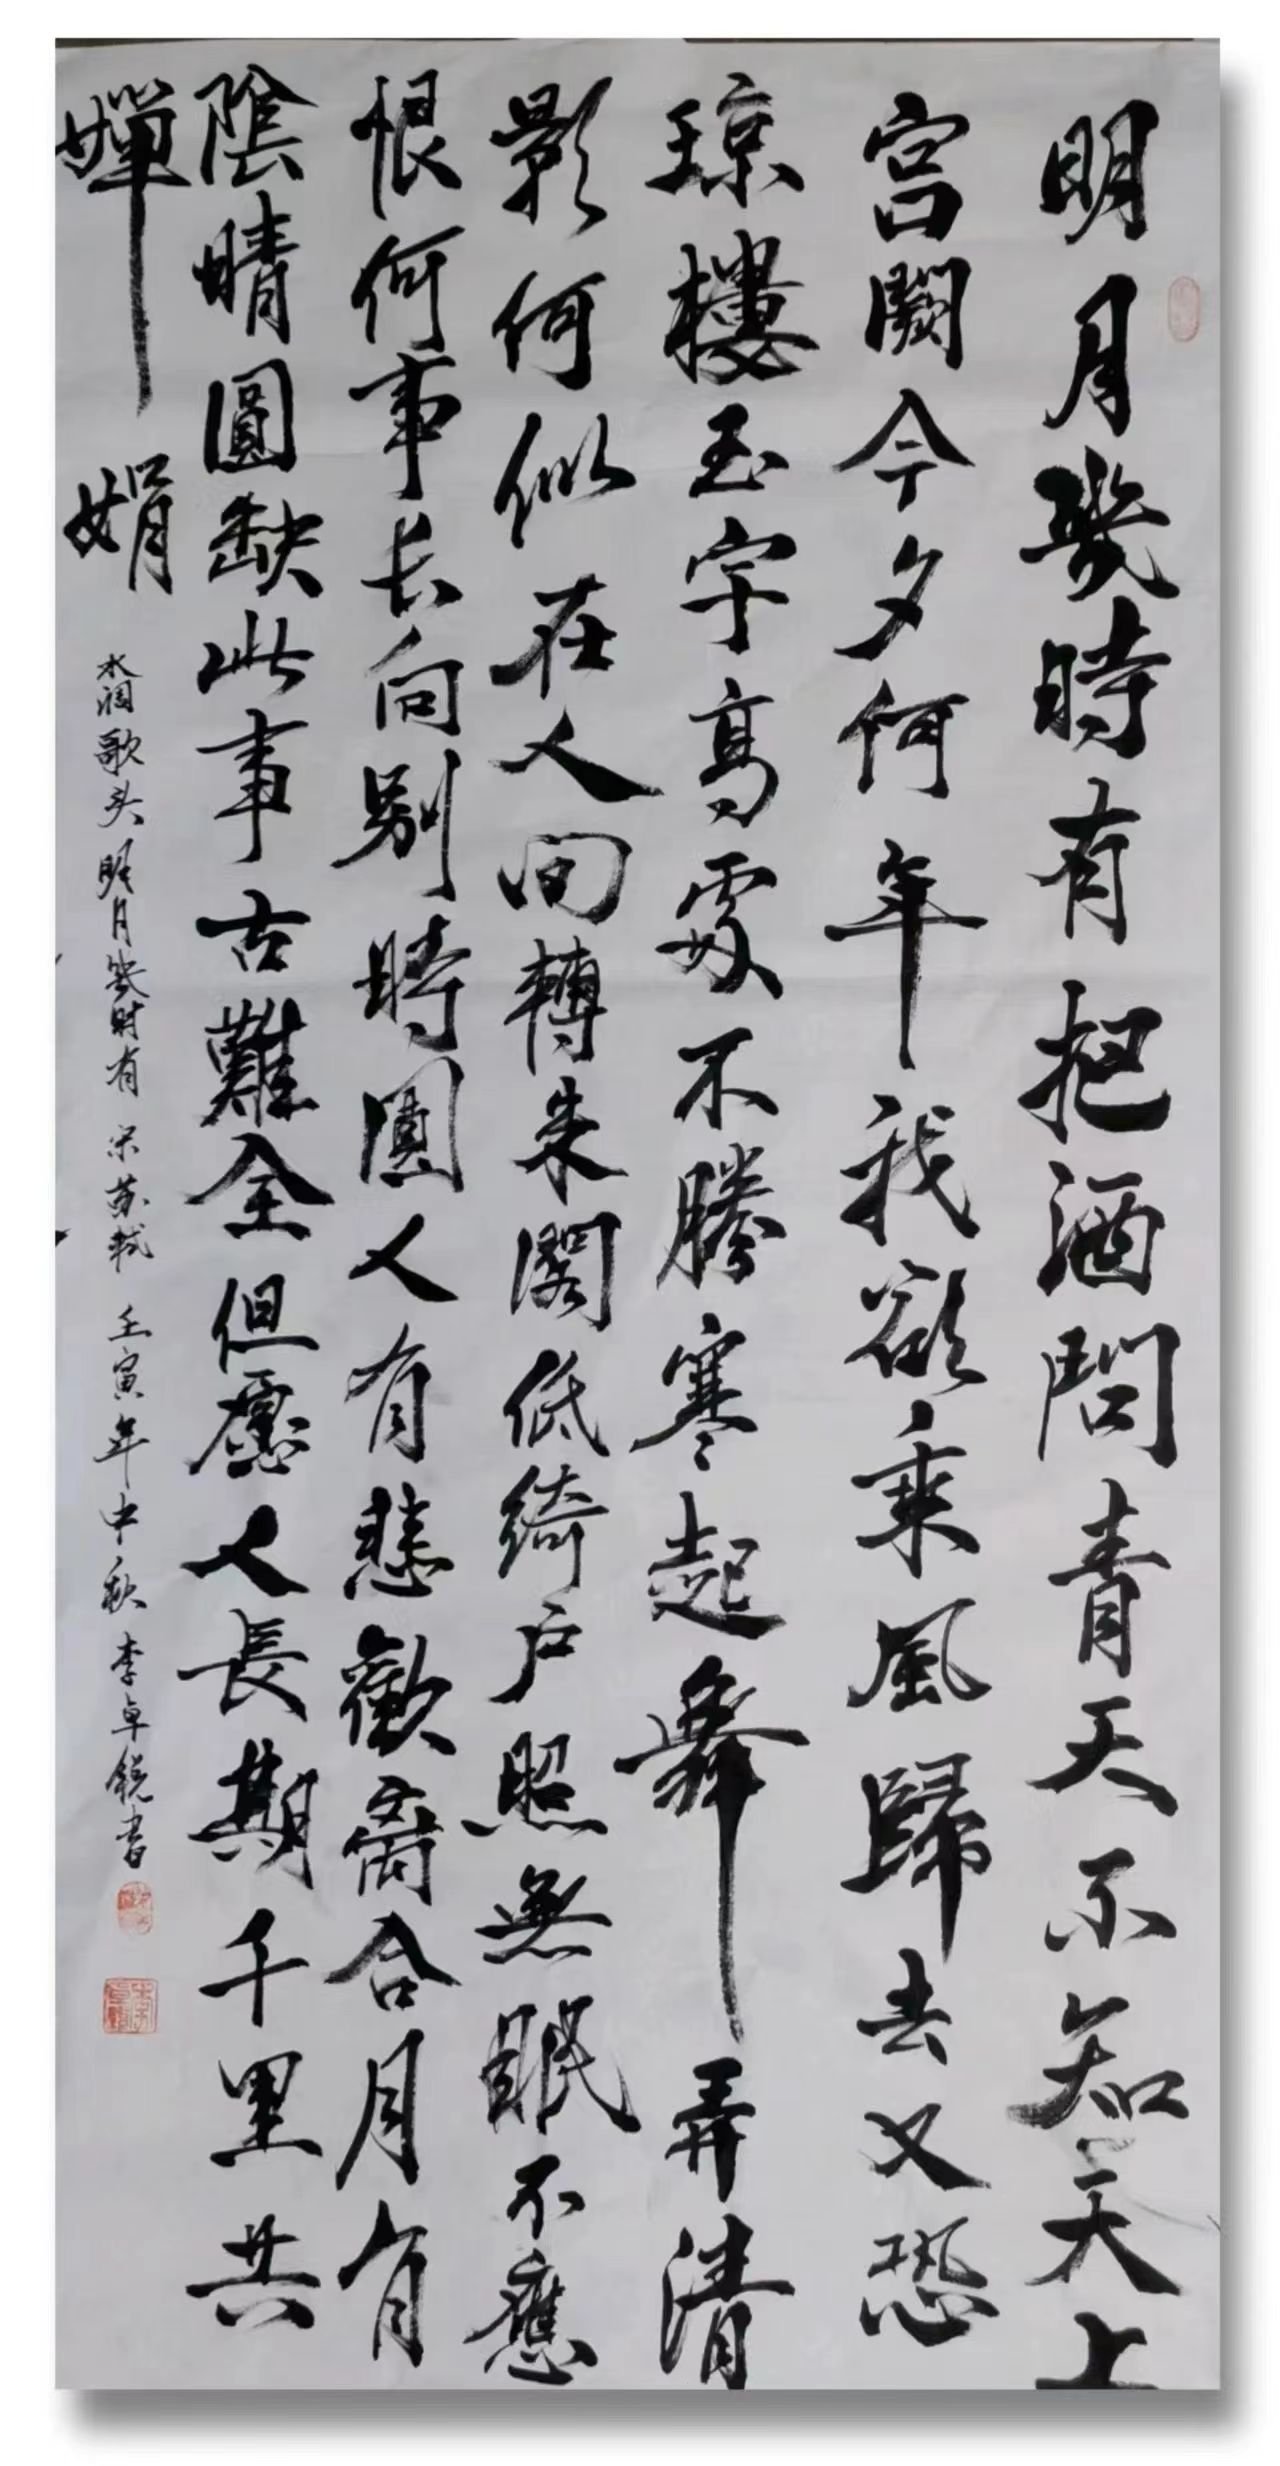 明月幾時有把酒問青天不知天上
宮闕今夕何年我欲乘風歸去又恐
琼樓玉宇高處不勝寒起舞弄清
影何似在人间轉朱閣低綺户照無眠不應
恨何事长向别時圓人有悲歡离合月有
陰晴圓缺此事古難全但愿人長期千里共
嬋娟
水调歌头明月幾时有 宋苏轼 壬寅年中秋 李卓锐书